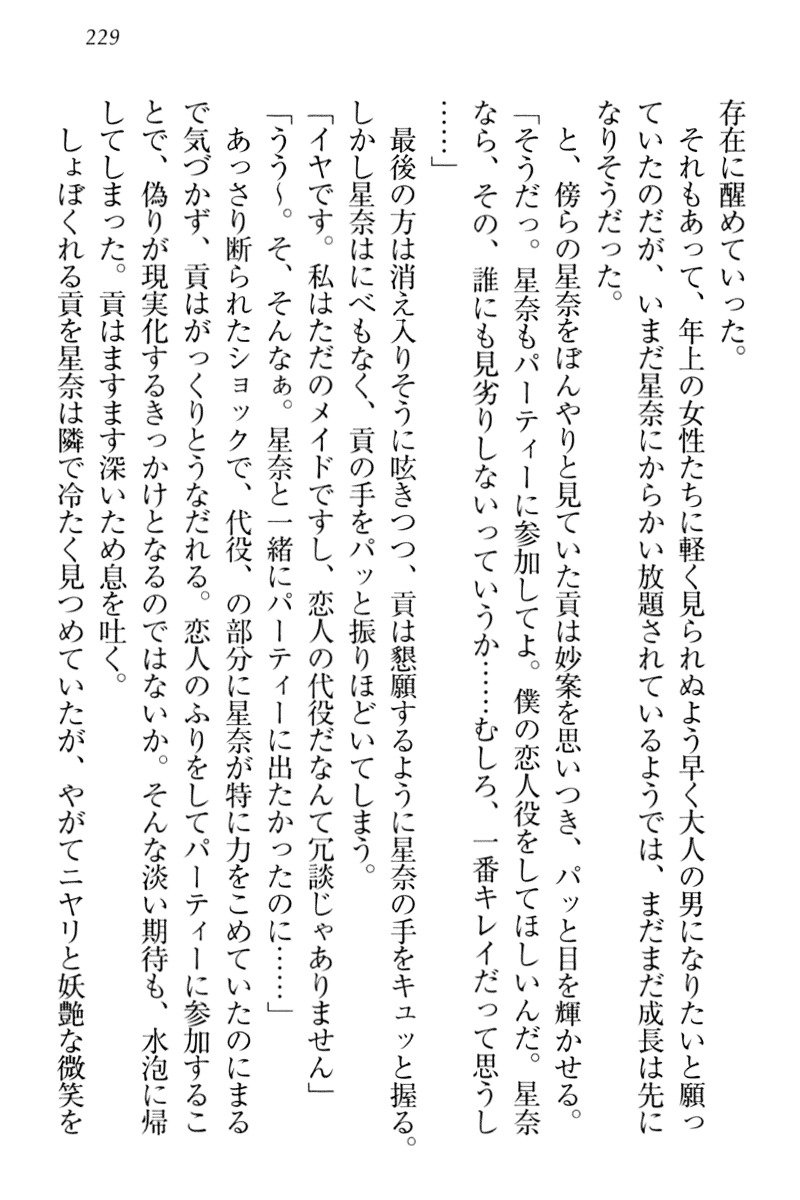 229
存在に醒めていった。
それもあって、年上の女性たちに軽く見られぬよう早く大人の男になりたいと願っ
ていたのだが、いまだ星奈にからかい放題されているようでは、まだまだ成長は先に
なりそうだった。
と、傍らの星奈をぼんやりと見ていた貢は妙案を思いつき、パッと目を輝かせる。
「そうだっ。星奈もパーティーに参加してよ。僕の恋人役をしてほしいんだ。星奈
なら、その、誰にも見劣りしないっていうか……むしろ、一番キレイだって思うし
……」
最後の方は消え入りそうに呟きつつ、貢は懇願するように星奈の手をキュッと握る。
しかし星奈はにべもなく、貢の手をパッと振りほどいてしまう。
「イヤです。私はただのメイドですし、恋人の代役だなんて冗談じゃありません」
「うう～。そ、そんなぁ。星奈と一緒にパーティーに出たかったのに……」
あっさり断られたショックで、代役、の部分に星奈が特に力をこめていたのにまる
で気づかず、貢はがっくりとうなだれる。恋人のふりをしてパーティーに参加するこ
とで、偽りが現実化するきっかけとなるのではないか。そんな淡い期待も、水泡に帰
してしまった。貢はますます深いため息を吐く。
しょぼくれる貢を星奈は隣で冷たく見つめていたが、やがてニヤリと妖艶な微笑を